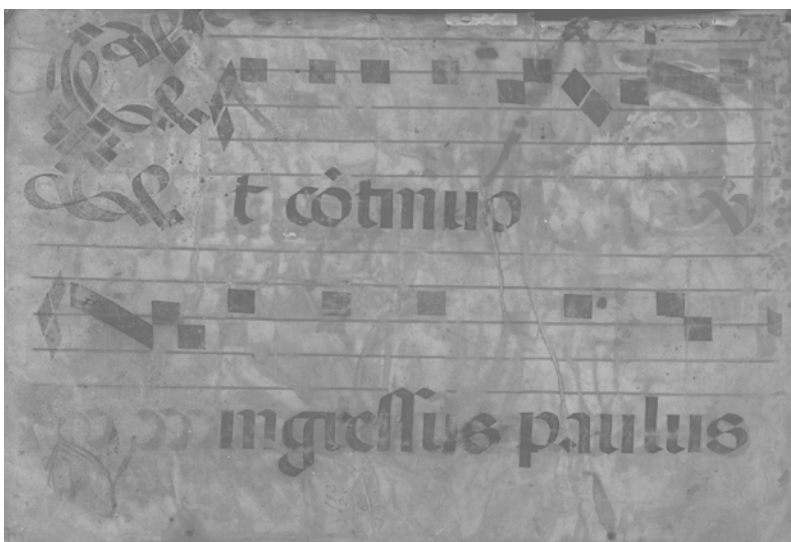 Et cõtinuo
ingreſſus paulus